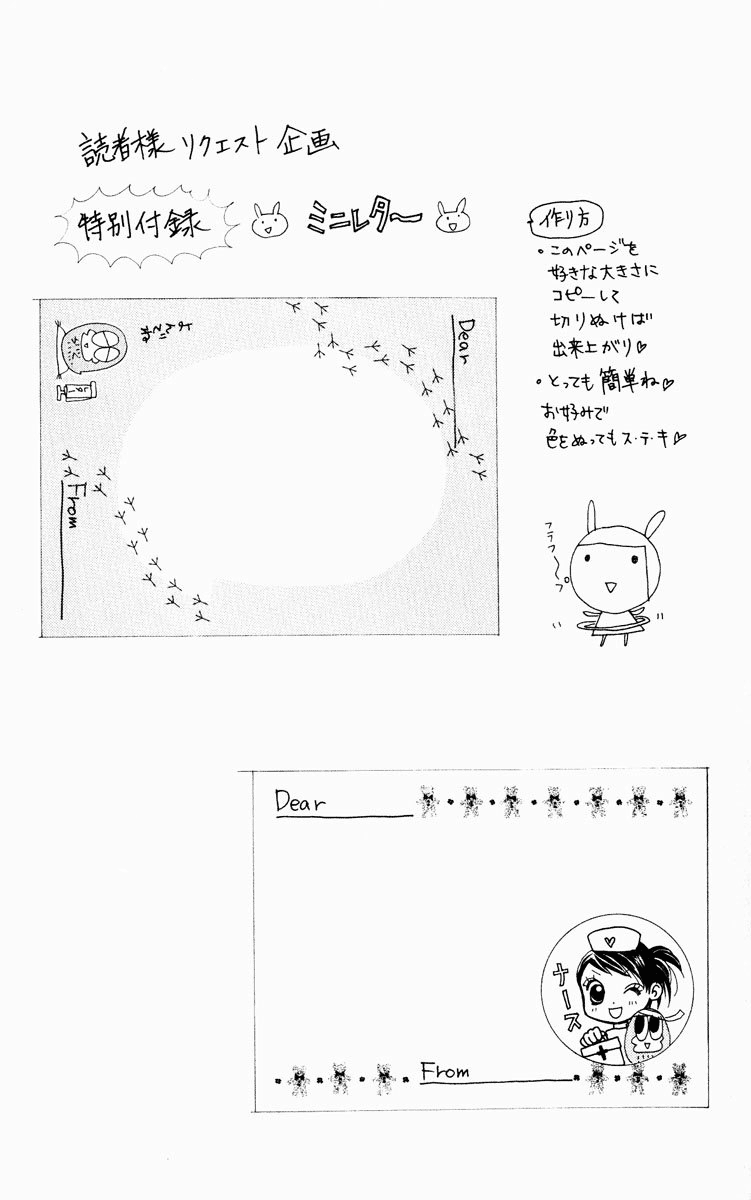 読者様リクエスト企画
特別付録
ミニレター
作り方
・このページを
好きな大きさに
コピーして
切りぬけば
出来上がり♡
・とっても簡単ね♡
お好みで
色をぬってもス・テ・キ♡
Dear
よんでね
From
フラフ〜プ
Dear
ナース
From